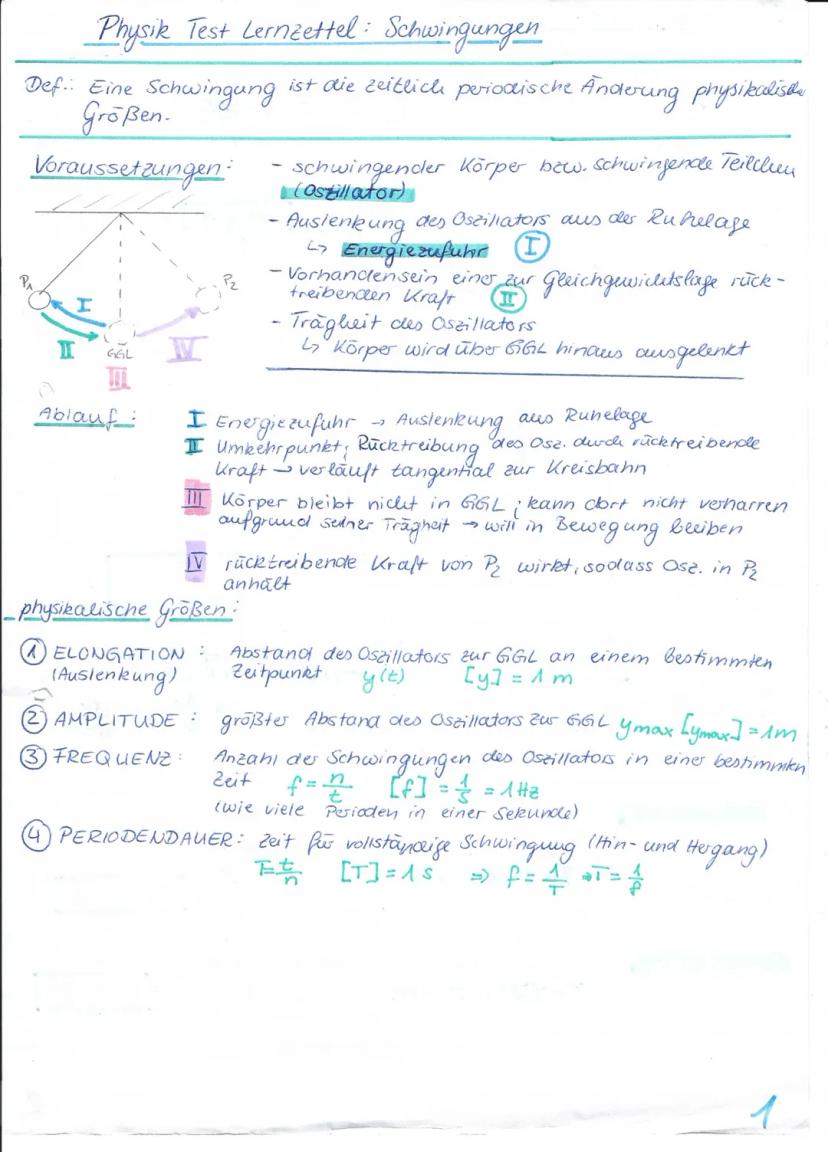 Physik Test Lernzettel: Schwingungen
Def.: Eine Schwingung ist die zeitlich periodische Änderung physikalische
Größen.
Voraussetzungen:
- schwingender Körper bzw. schwingende Teilchen
(Oszillator)
- Auslenkung des Oszillators aus der Ruhelage
↳ Energiezufuhr I
- Vorhandensein einer zur Gleichgewichtslage rück-
treibenden Kraft II
- Trägheit des Oszillators
↳ Körper wird über GGL hinaus ausgelenkt
P1
P2
I
II
GGL
IV
III
Ablauf:
I Energiezufuhr → Auslenkung aus Ruhelage
II Umkehrpunkt; Rücktreibung des Osz. durch rücktreibende
Kraft → verläuft tangential zur Kreisbahn
III Körper bleibt nicht in GGL; kann dort nicht verharren
aufgrund seiner Trägheit → will in Bewegung bleiben
IV rücktreibende Kraft von P2 wirkt, sodass Osz. in P2
anhält
physikalische Größen:
① ELONGATION: Abstand des Oszillators zur GGL an einem bestimmten
(Auslenkung) Zeitpunkt y(t) [y] = 1 m
② AMPLITUDE: größter Abstand des Oszillators zur GGL ymax [ymax] = 1m
③ FREQUENZ: Anzahl der Schwingungen des Oszillators in einer bestimmten
Zeit f = n/t [f] = 1/s = 1 Hz
(wie viele Perioden in einer Sekunde)
④ PERIODENDAUER: Zeit für vollständige Schwingung (Hin- und Hergang)
T = t/n [T] = 1 s ⇒ f = 1/T ⇒ T = 1/f
1